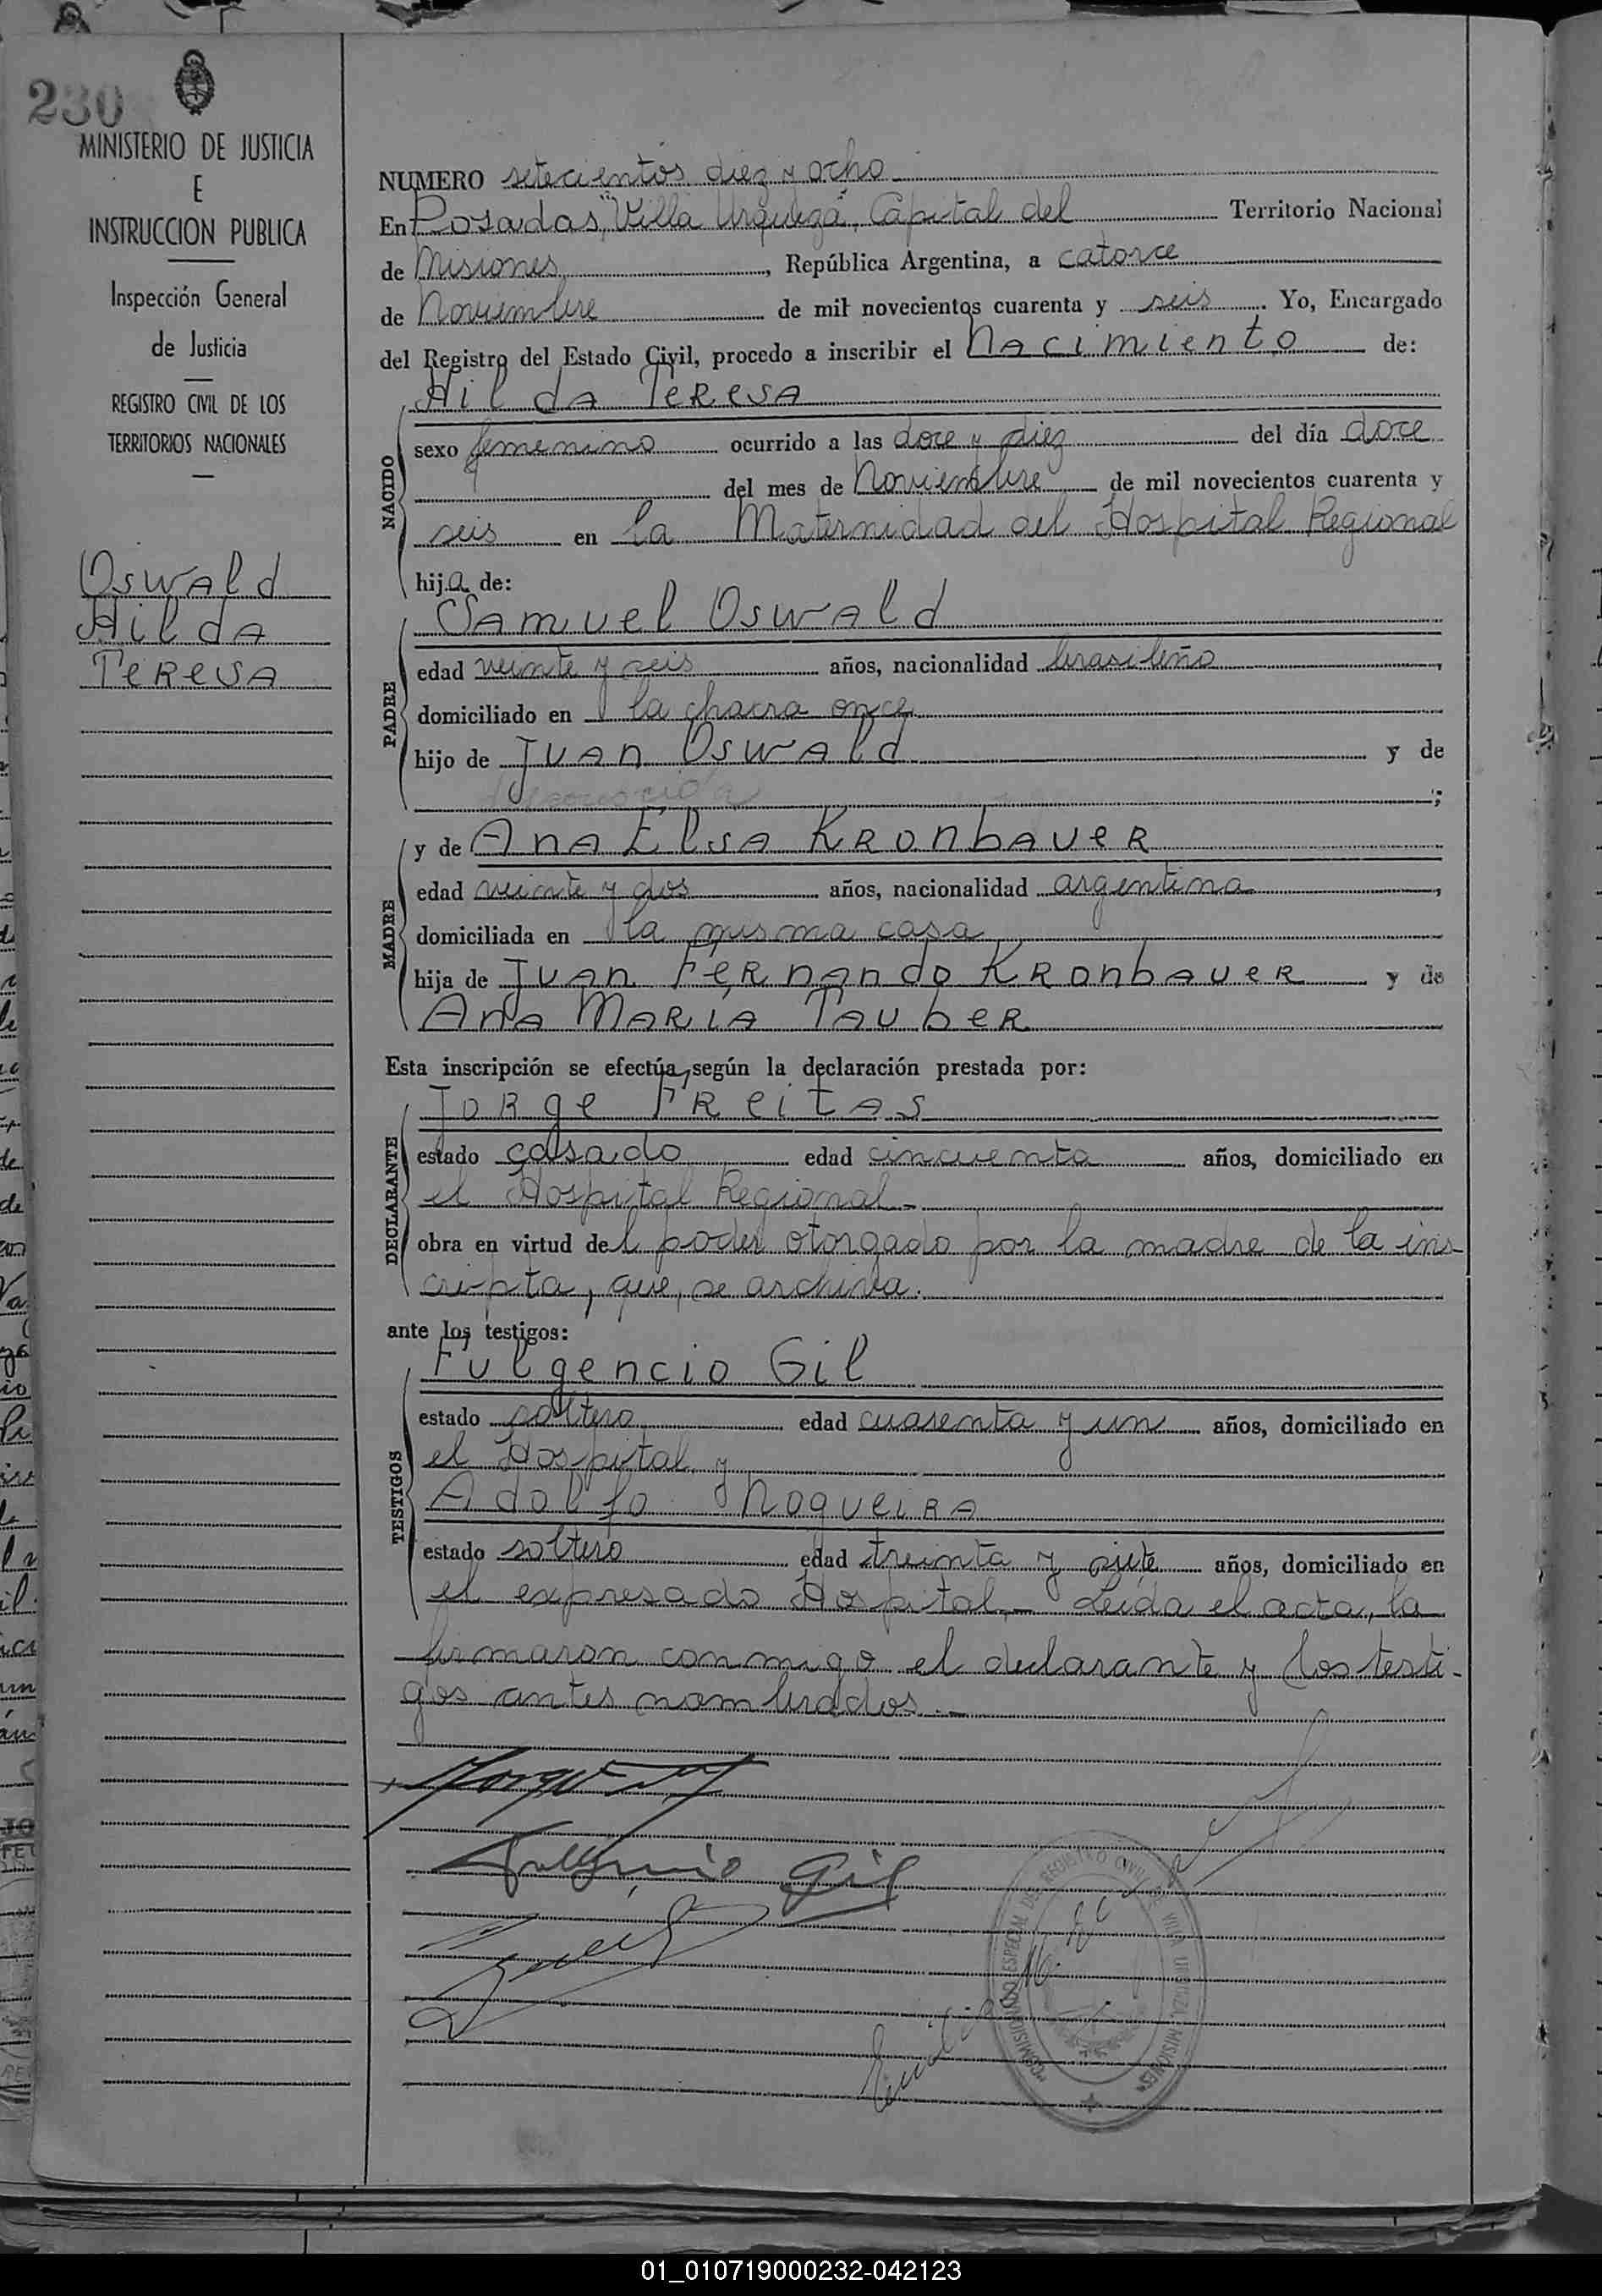 230
MINISTERIO DE JUSTICIA
E
INSTRUCCION PUBLICA
Inspección General
de Justicia
REGISTRO CIVIL DE LOS
TERRITORIOS NACIONALES
Oswald
Hilda
Teresa
NUMERO setecientos diez y ocho
En Posadas, "Villa Urquiza", Capital del Territorio Nacional
de Misiones, República Argentina, a catorce
de Noviembre de mil novecientos cuarenta y seis. Yo, Encargado
del Registro del Estado Civil, procedo a inscribir el Nacimiento de:
Hilda Teresa
NACIDO
sexo femenino ocurrido a las doce y diez del día doce
del mes de Noviembre de mil novecientos cuarenta y
seis en la Maternidad del Hospital Regional
hija de:
Samuel Oswald
PADRE
edad veinte y seis años, nacionalidad brasileño,
domiciliado en la chacra once
hijo de Juan Oswald y de
;
y de Ana Elsa Kronbauer
MADRE
edad veinte y dos años, nacionalidad argentina,
domiciliada en la misma casa
hija de Juan Fernando Kronbauer y de
Ana María Tauber
Esta inscripción se efectúa, según la declaración prestada por:
Jorge Freitas
DECLARANTE
estado casado edad cincuenta años, domiciliado en
el Hospital Regional.-
obra en virtud del poder otorgado por la madre de la ins-
cripta, que, se archiva.
ante los testigos:
Fulgencio Gil
TESTIGOS
estado soltero edad cuarenta y un años, domiciliado en
el Hospital y
Adolfo Nogueira
estado soltero edad treinta y siete años, domiciliado en
el expresado Hospital.- Leída el acta, la
firmaron conmigo el declarante y los testi-
gos antes nombrados.-
Fulgencio Gil
COMISIONADO ESPECIAL DEL REGISTRO CIVIL DE VILLA URQUIZA-MISIONES
01_010719000232-042123